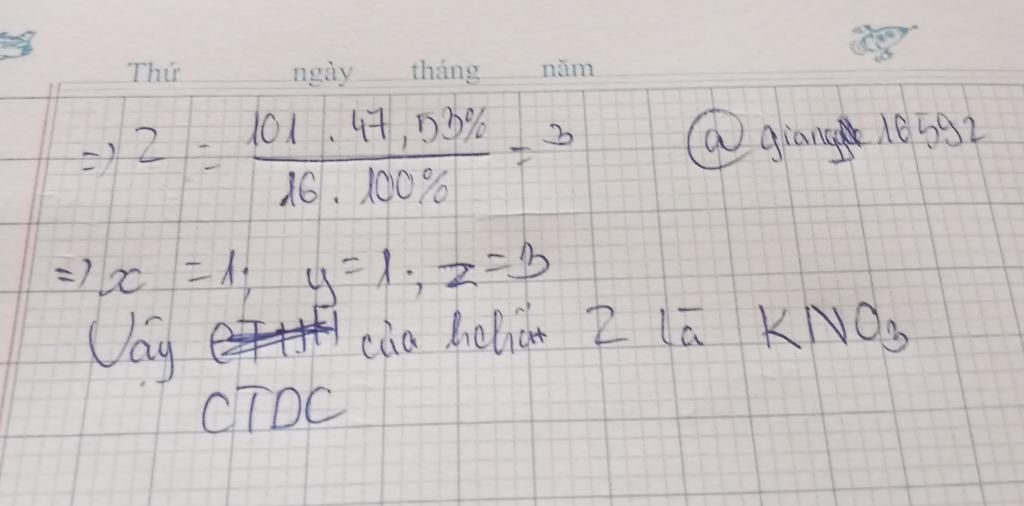 Thứ ngày tháng năm
=> z = 101 . 47,53% / 16 . 100% = 3 @giang 16592
=> x = 1; y = 1; z = 3
Vậy của hchất Z là KNO3
CTDC